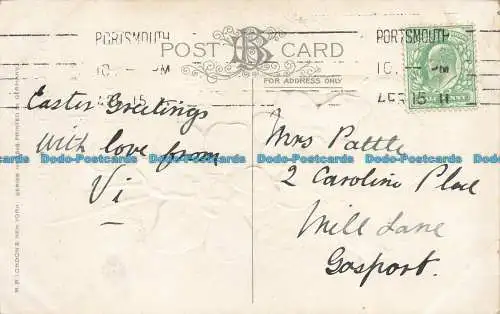 PORTSMOUTH
PORTSMOUTH
POST CARD
FOR ADDRESS ONLY
PM
PM
15 11
Easter Greetings
with love from
Vi
Mrs Pattle
2 Caroline Place
Mill Lane
Gosport.
Dodo-Postcards Dodo-Postcards Dodo-Postcards Dodo-Postcards Dodo-Postcards Dodo-Postcards
LONDON & NEW YORK.
PRINTED IN GERMANY